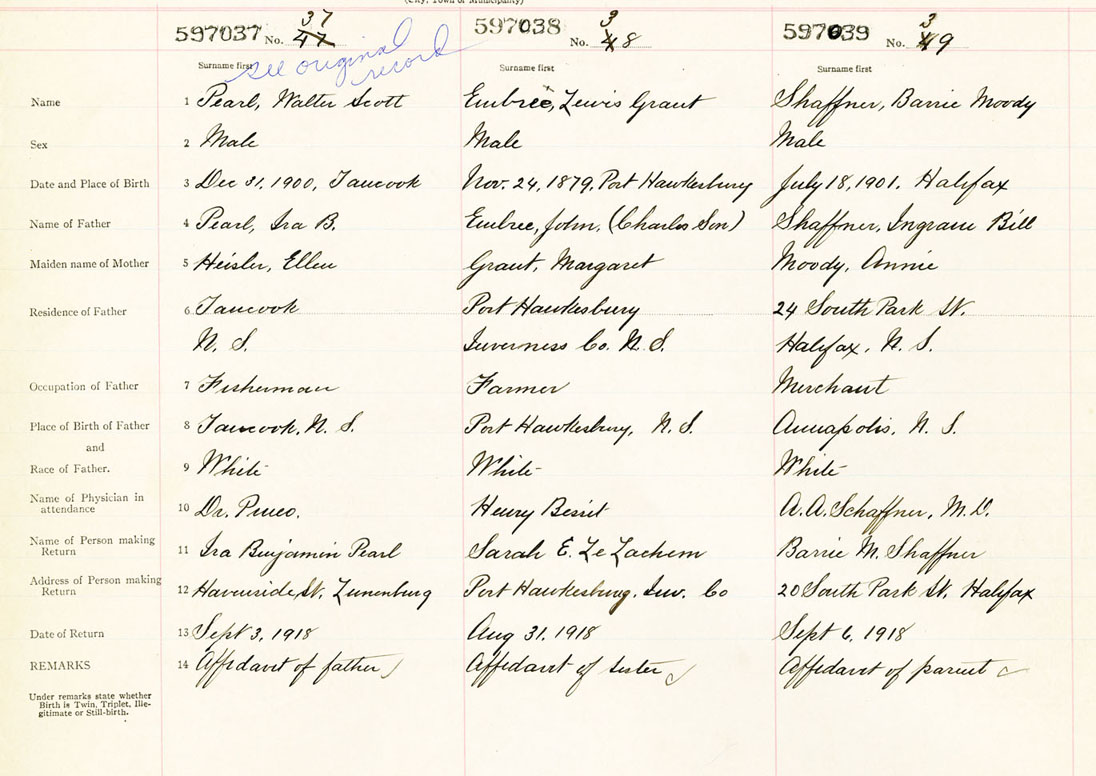 (City, Town or Municipality)
597037 No. 47 37
597038 No. 48 3
597039 No. 49 3
see original record
Surname first Surname first Surname first
Name 1 Pearl, Walter Scott Embree, Lewis Grant Shaffner, Barrie Moody
Sex 2 Male Male Male
Date and Place of Birth 3 Dec 31, 1900, Tancook Nov. 24, 1879, Port Hawkesbury July 18, 1901. Halifax
Name of Father 4 Pearl, Ira B. Embree, John, (Charles Son) Shaffner, Ingram Bill
Maiden name of Mother 5 Heisler, Ellen Grant, Margaret Moody, Annie
Residence of Father 6 Tancook Port Hawkesbury 24 South Park St.
N. S. Inverness Co. N. S. Halifax, N. S.
Occupation of Father 7 Fisherman Farmer Merchant
Place of Birth of Father 8 Tancook, N. S. Port Hawkesbury, N. S. Annapolis, N. S.
and
Race of Father. 9 White White White
Name of Physician in
attendance 10 Dr. Henry A. A. Schaffner, M. D.
Name of Person making
Return 11 Ira Benjamin Pearl Sarah E. Le Lachem Barrie M. Shaffner
Address of Person making
Return 12 St, Lunenburg Port Hawkesburg, Inv. Co 20 South Park St. Halifax
Date of Return 13 Sept 3, 1918 Aug 31, 1918 Sept 6, 1918
REMARKS 14 Affidavit of father Affidavit of sister Affidavit of parent
Under remarks state whether
Birth is Twin, Triplet, Ille-
gitimate or Still-birth.